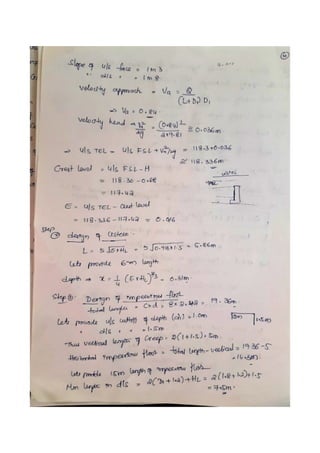 Slope of u/s face = 1 in 3
" d/s " = 1 in 8.
Velocity approach = Va = Q
(L+D1) D1
→ Va = 0.84
Velocity head = Va²/2g = (0.84)²/2×9.81 ≅ 0.036m
→ u/s TEL = u/s F.S.L + Va²/2g = 118.3+0.036
≅ 118.336m
Crest level = u/s F.S.L - H
= 118.30 - 0.88
= 117.42
E = u/s TEL - crest level
= 118.336 - 117.42 = 0.916
Step
design of cistern.
L = 5√E×HL = 5√0.916×1.5 = 5.86m.
Lets provide 6m length
depth → x = 1/4 (E×HL)^2/3 = 0.31m
Step Design of impervious floor
total length = C×d = 8× = 19.36m
Lets provide u/s cutoff of depth (ch) = 1.0m
" d/s " " = 1.5m
1.5m
Thus vertical length of creep = 2(1+1.5) = 5m.
Horizontal impervious floor = total length - vertical = 19.36-5
= 14.36m
Lets provide 15m length of impervious floor
Min length on d/s = 2( + 1.2) + HL = 2( + 1.2)+1.5
= 7.5m